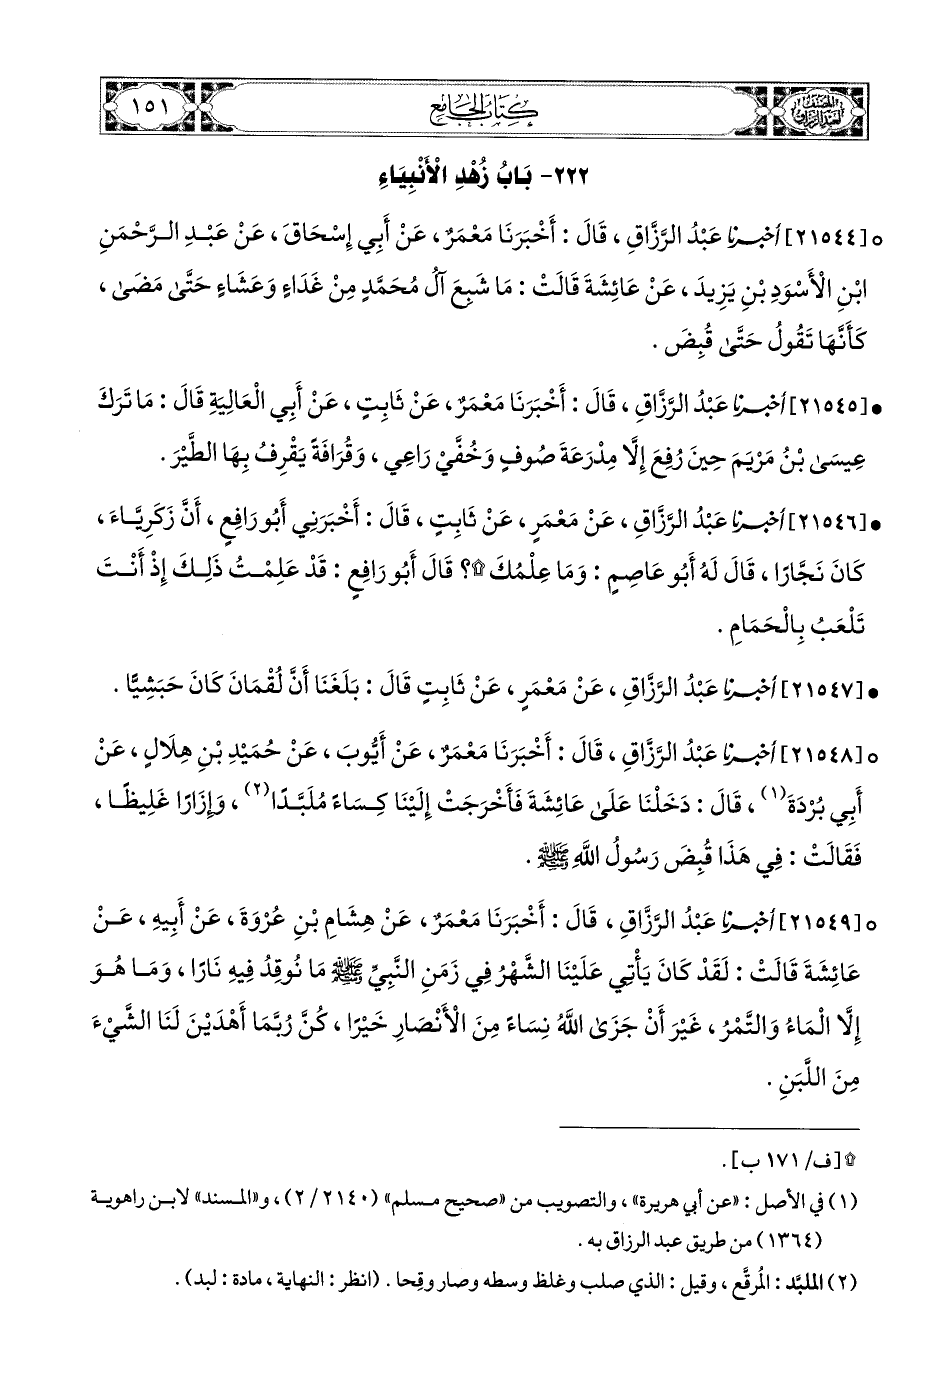 المصنف لعبد الرزاق
كتاب الجامع
١٥١
٢٢٢- بَابُ زُهْدِ الْأَنْبِيَاءِ
○ [٢١٥٤٤] أخبرنا عَبْدُ الرَّزَّاقِ، قَالَ: أَخْبَرَنَا مَعْمَرٌ، عَنْ أَبِي إِسْحَاقَ، عَنْ عَبْدِ الرَّحْمَنِ
ابْنِ الْأَسْوَدِ بْنِ يَزِيدَ، عَنْ عَائِشَةَ قَالَتْ: مَا شَبِعَ آلُ مُحَمَّدٍ مِنْ غَدَاءٍ وَعَشَاءٍ حَتَّى مَضَى،
كَأَنَّهَا تَقُولُ حَتَّى قُبِضَ.
• [٢١٥٤٥] أخبرنا عَبْدُ الرَّزَّاقِ، قَالَ: أَخْبَرَنَا مَعْمَرٌ، عَنْ ثَابِتٍ، عَنْ أَبِي الْعَالِيَةِ قَالَ: مَا تَرَكَ
عِيسَى بْنُ مَرْيَمَ حِينَ رُفِعَ إِلَّا مِدْرَعَةَ صُوفٍ وَخُفَّيْ رَاعِي، وَقُرَافَةً يَقْرِفُ بِهَا الطَّيْرَ.
• [٢١٥٤٦] أخبرنا عَبْدُ الرَّزَّاقِ، عَنْ مَعْمَرٍ، عَنْ ثَابِتٍ، قَالَ: أَخْبَرَنِي أَبُو رَافِعٍ، أَنَّ زَكَرِيَّاءَ،
كَانَ نَجَّارًا، قَالَ لَهُ أَبُو عَاصِمٍ: وَمَا عِلْمُكَ ۩؟ قَالَ أَبُو رَافِعٍ: قَدْ عَلِمْتُ ذَلِكَ إِذْ أَنْتَ
تَلْعَبُ بِالْحَمَامِ.
• [٢١٥٤٧] أخبرنا عَبْدُ الرَّزَّاقِ، عَنْ مَعْمَرٍ، عَنْ ثَابِتٍ قَالَ: بَلَغَنَا أَنَّ لُقْمَانَ كَانَ حَبَشِيًّا.
○ [٢١٥٤٨] أخبرنا عَبْدُ الرَّزَّاقِ، قَالَ: أَخْبَرَنَا مَعْمَرٌ، عَنْ أَيُّوبَ، عَنْ حُمَيْدِ بْنِ هِلَالٍ، عَنْ
أَبِي بُرْدَةَ(١)، قَالَ: دَخَلْنَا عَلَى عَائِشَةَ فَأَخْرَجَتْ إِلَيْنَا كِسَاءً مُلَبَّدًا(٢)، وَإِزَارًا غَلِيظًا،
فَقَالَتْ: فِي هَذَا قُبِضَ رَسُولُ اللَّهِ ﷺ.
○ [٢١٥٤٩] أخبرنا عَبْدُ الرَّزَّاقِ، قَالَ: أَخْبَرَنَا مَعْمَرٌ، عَنْ هِشَامِ بْنِ عُرْوَةَ، عَنْ أَبِيهِ، عَنْ
عَائِشَةَ قَالَتْ: لَقَدْ كَانَ يَأْتِي عَلَيْنَا الشَّهْرُ فِي زَمَنِ النَّبِيِّ ﷺ مَا نُوقِدُ فِيهِ نَارًا، وَمَا هُوَ
إِلَّا الْمَاءُ وَالتَّمْرُ، غَيْرَ أَنْ جَزَى اللَّهُ نِسَاءً مِنَ الْأَنْصَارِ خَيْرًا، كُنَّ رُبَّمَا أَهْدَيْنَ لَنَا الشَّيْءَ
مِنَ اللَّبَنِ.
۩ [ف/ ١٧١ ب].
(١) في الأصل: «عن أبي هريرة»، والتصويب من «صحيح مسلم» (٢١٤٠/ ٢)، و«المسند» لابن راهوية
(١٣٦٤) من طريق عبد الرزاق به.
(٢) الملبَّد: المُرقَّع، وقيل: الذي صلب وغلظ وسطه وصار وقِحا. (انظر: النهاية، مادة: لبد).